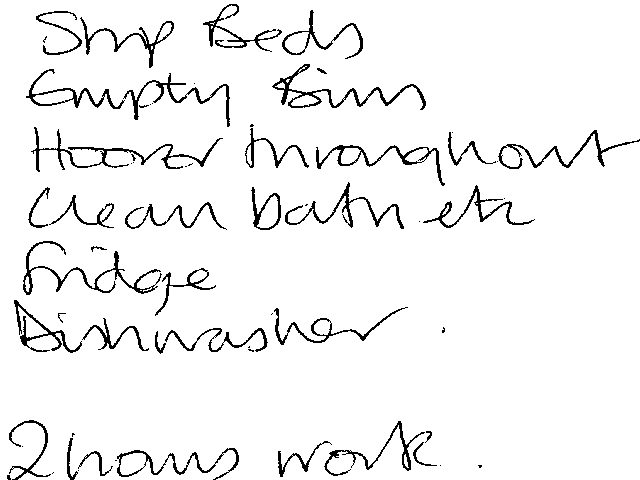 Strip Beds
Empty Bins
Hoover throughout
Clean bath etc
Fridge
Dishwasher.
2 hours work.